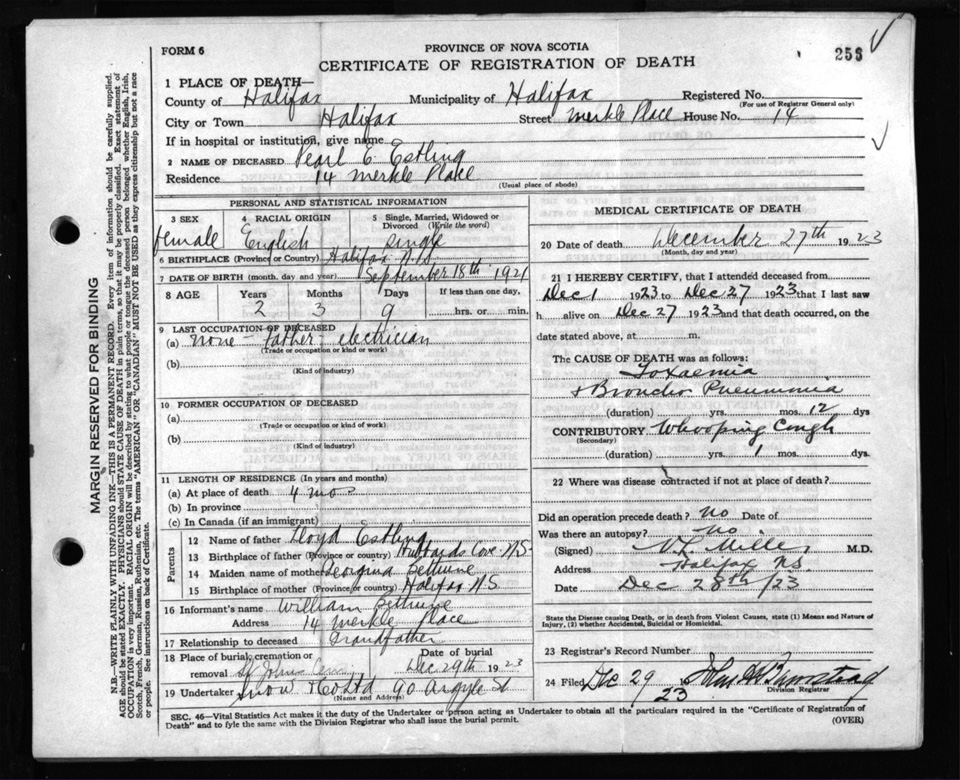 FORM 6
PROVINCE OF NOVA SCOTIA
CERTIFICATE OF REGISTRATION OF DEATH
253
1 PLACE OF DEATH—
County of Halifax Municipality of Halifax Registered No.
(For use of Registrar General only)
City or Town Halifax Street Merkle Place House No. 14
If in hospital or institution, give name
2 NAME OF DECEASED Pearl E. Estling
Residence 14 Merkle Place
(Usual place of abode)
PERSONAL AND STATISTICAL INFORMATION
3 SEX 4 RACIAL ORIGIN 5 Single, Married, Widowed or Divorced (Write the word)
Female English single
6 BIRTHPLACE (Province or Country) Halifax N.S.
7 DATE OF BIRTH (month, day and year) September 18th 1921
8 AGE Years Months Days If less than one day,
2 3 9 hrs. or min.
9 LAST OCCUPATION OF DECEASED
(a) None - Father electrician
(Trade or occupation or kind of work)
(b)
(Kind of industry)
10 FORMER OCCUPATION OF DECEASED
(a)
(Trade or occupation or kind of work)
(b)
(Kind of industry)
11 LENGTH OF RESIDENCE (In years and months)
(a) At place of death 4 mo
(b) In province
(c) In Canada (if an immigrant)
Parents
12 Name of father Lloyd Estling
13 Birthplace of father (Province or country) Hubbards Cove N.S.
14 Maiden name of mother Georgina Bethune
15 Birthplace of mother (Province or country) Halifax N.S
16 Informant's name William Bethune
Address 14 Merkle place
17 Relationship to deceased Grandfather
18 Place of burial, cremation or removal St John Cem Date of burial Dec 29th 1923
19 Undertaker Snow & Co Ltd 90 Argyle St
(Name and Address)
MEDICAL CERTIFICATE OF DEATH
20 Date of death December 27th 1923
(Month, day and year)
21 I HEREBY CERTIFY, that I attended deceased from
Dec 1 1923 to Dec 27 1923 that I last saw
h alive on Dec 27 1923 and that death occurred, on the
date stated above, at m.
The CAUSE OF DEATH was as follows:
Toxaemia
& Broncho Pneumonia
(duration) yrs. mos. 12 dys
CONTRIBUTORY Whooping Cough
(Secondary)
(duration) yrs. 1 mos. dys
22 Where was disease contracted if not at place of death?
Did an operation precede death? No Date of
Was there an autopsy? No
(Signed) V.L. Miller, M.D.
Address Halifax N.S.
Date Dec 28th/23
State the Disease causing Death, or in death from Violent Causes, state (1) Means and Nature of
Injury, (2) whether Accidental, Suicidal or Homicidal.
23 Registrar's Record Number
24 Filed Dec 29 1923
Division Registrar
SEC. 46—Vital Statistics Act makes it the duty of the Undertaker or person acting as Undertaker to obtain all the particulars required in the "Certificate of Registration of
Death" and to fyle the same with the Division Registrar who shall issue the burial permit.
(OVER)
MARGIN RESERVED FOR BINDING
N.B.—WRITE PLAINLY WITH UNFADING INK—THIS IS A PERMANENT RECORD. Every item of information should be carefully supplied.
AGE should be stated EXACTLY. PHYSICIANS should STATE CAUSE OF DEATH in plain terms, so that it may be properly classified. Exact statement of
OCCUPATION is very important. RACIAL ORIGIN will be described by stating to what people or tongue the deceased person belonged whether English, Irish,
Scotch, French, German, Russian, Ruthenian, etc. The terms "AMERICAN" OR "CANADIAN" MUST NOT BE USED as they express citizenship but not a race
or people. See instructions on back of Certificate.